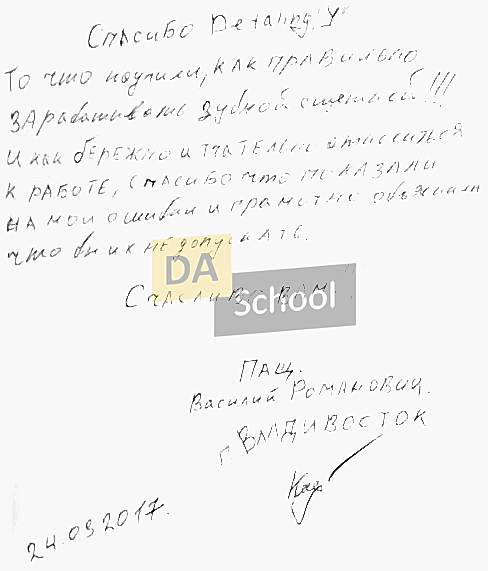 Спасибо Detaling "У"
То что научили, как правильно
зарабатывать зубной щеткой!!!
И как бережно и тчательно относиться
к работе, спасибо что показали
на мои ошибки и грамотно объяснили
что бы их не допускать.
DA
School
Счасливо вам!
Пащ.
Василий Романович.
г. Владивосток
24.09.2017.